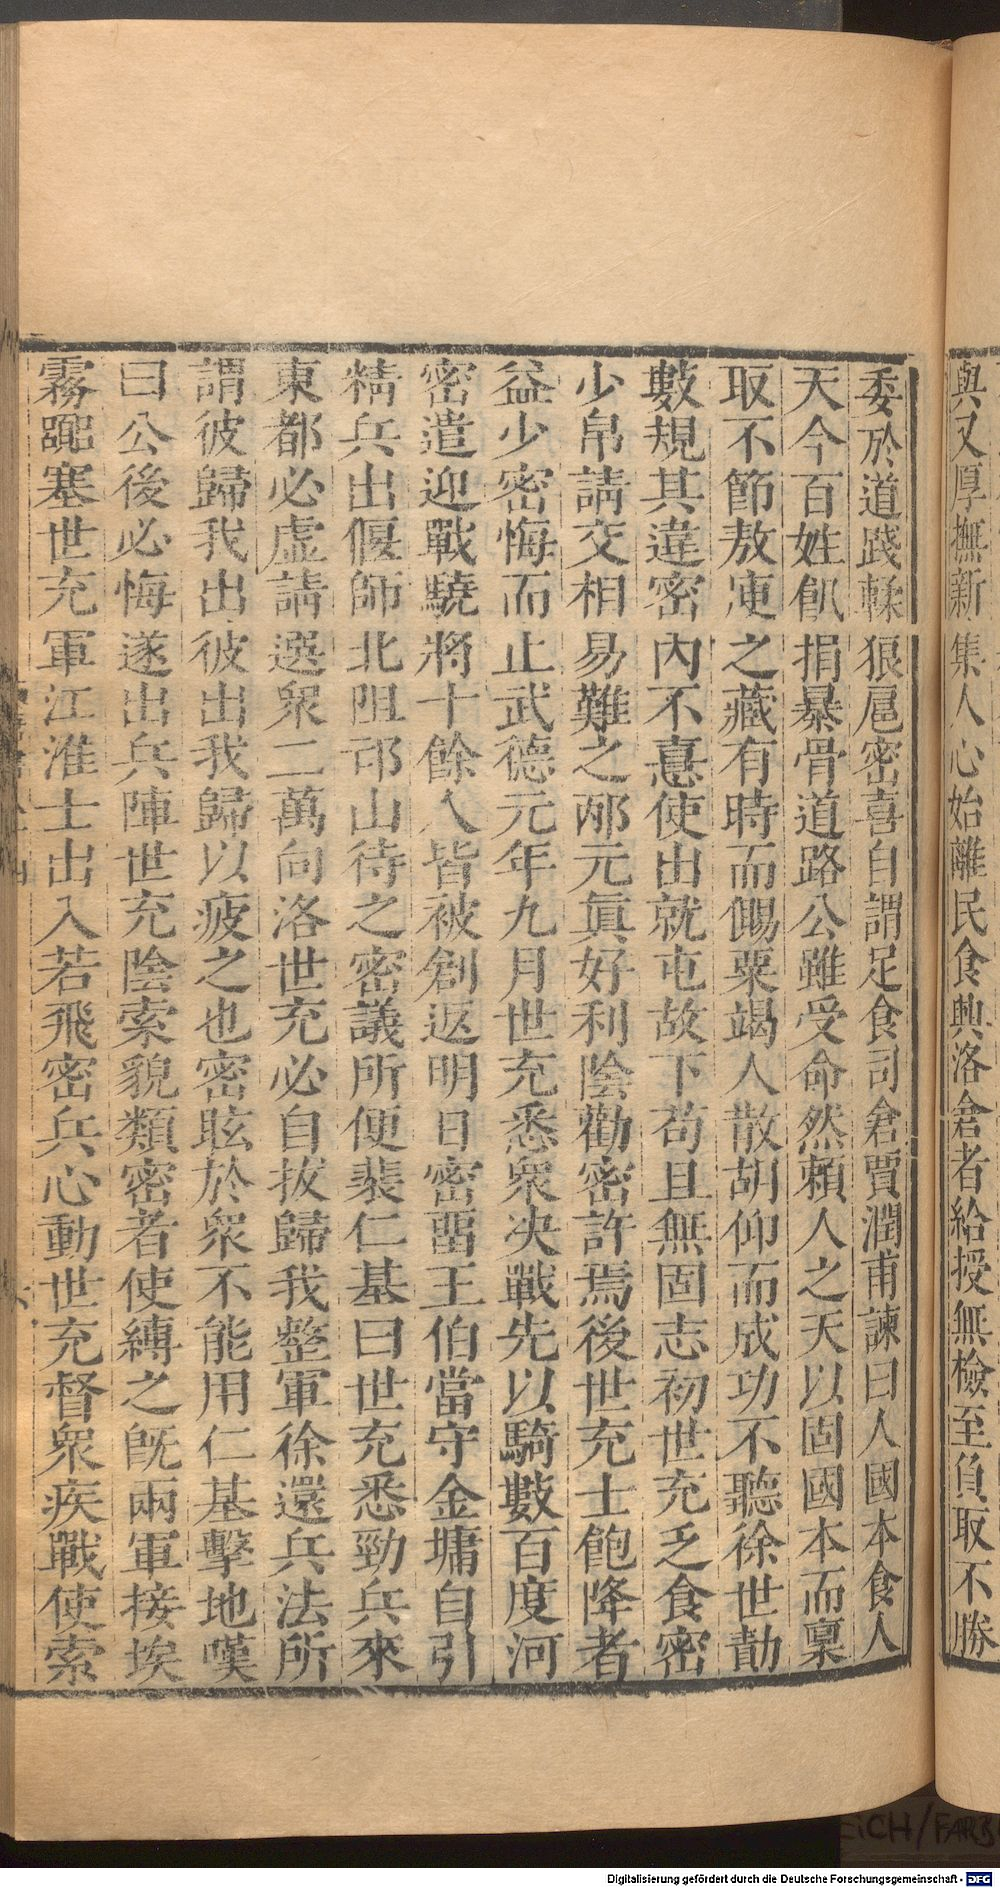 與又厚撫新集人心始離民食興洛倉者給授無檢至負取不勝
委於道踐輮狼扈密喜自謂足食司倉賈潤甫諫曰人國本食人
天今百姓飢捐暴骨道路公雖受命然賴人之天以固國本而稟
取不節敖庾之藏有時而儩粟竭人散胡仰而成功不聽徐世勣
數規其違密內不憙使出就屯故下苟且無固志初世充乏食密
少帛請交相易難之邴元眞好利陰勸密許焉後世充士飽降者
益少密悔而止武德元年九月世充悉衆决戰先以騎數百度河
密遣迎戰驍將十餘人皆被創返明日密畱王伯當守金墉自引
精兵出偃師北阻邙山待之密議所便裴仁基曰世充悉勁兵來
東都必虛請選衆二萬向洛世充必自拔歸我整軍徐還兵法所
謂彼歸我出彼出我歸以疲之也密眩於衆不能用仁基擊地嘆
曰公後必悔遂出兵陣世充陰索貌類密者使縛之旣兩軍接埃
霧嚻塞世充軍江淮士出入若飛密兵心動世充督衆疾戰使索
Digitalisierung gefördert durch die Deutsche Forschungsgemeinschaft - DFG